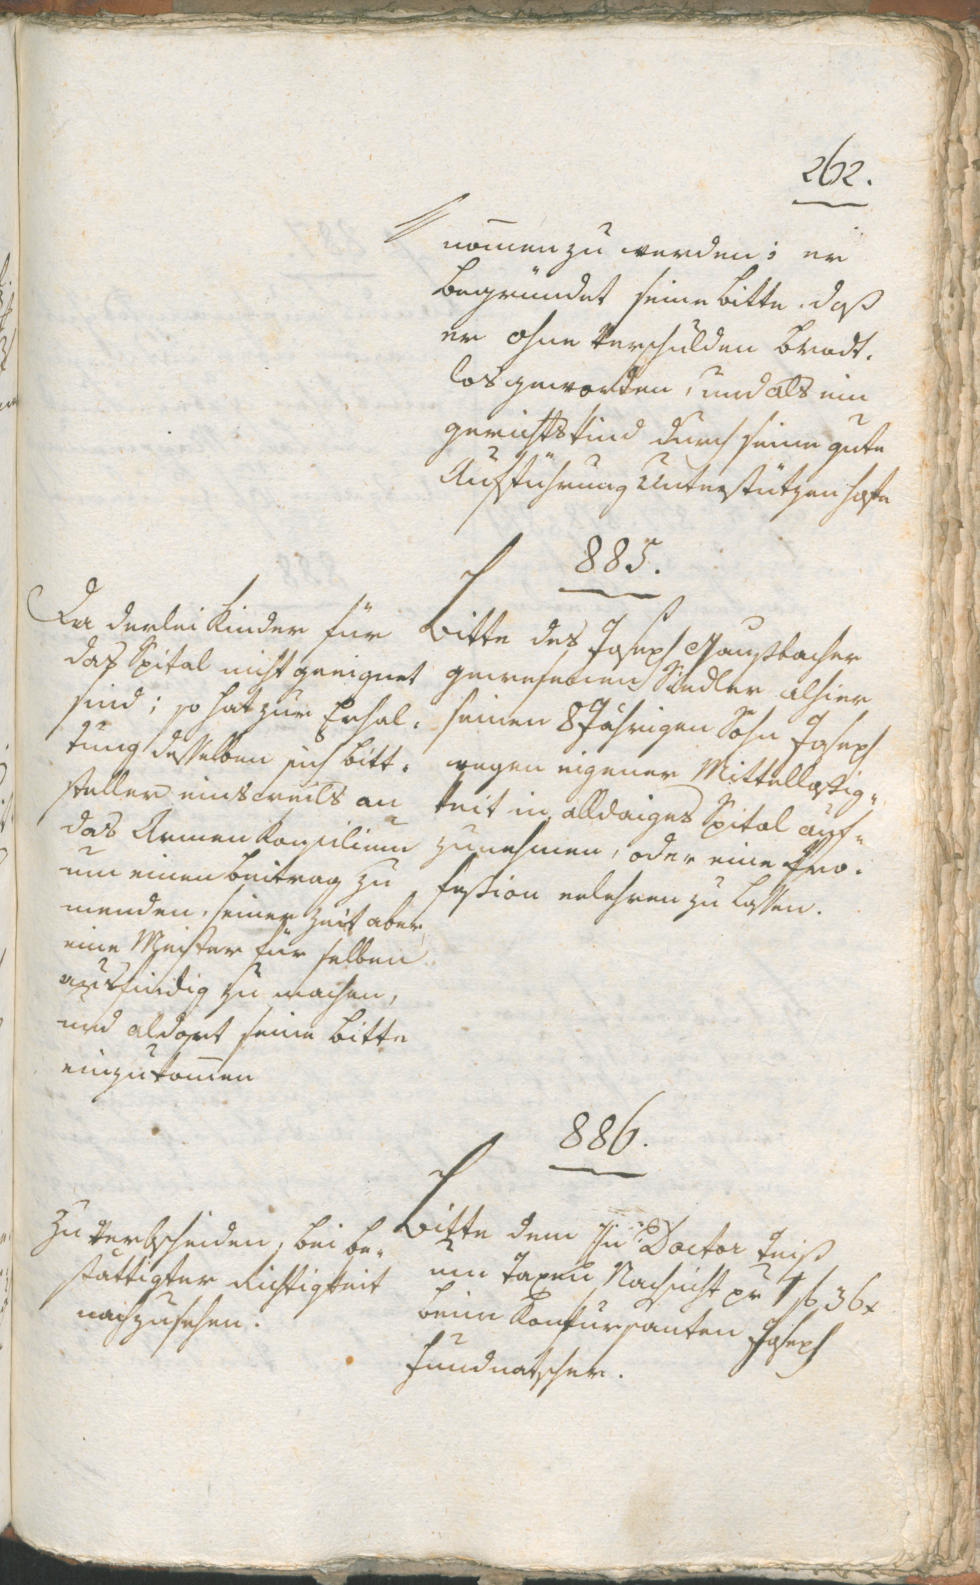 262.
nom̅en zu werden; er
begründet seine bitte. daß
er ohne Verschulden brodt.
los geworden, und als ein
gerichtskind durch seine gute
Aufführung Unterstützen hofe
885.
Bitte des Joseph
gewesenen Siedler alhier
seinen 8 Jährigen Sohn Joseph
wegen eigener Mittellosig=
keit in alldaiges Spital auf=
zunehmen, oder eine Pro=
feßion erlehren zu lassen.
Da derlei Kinder für
das Spital nicht geeignet
sind; so hat zur Erhal=
tung desselben sich bitt=
steller einsweils an
das Armen Konsilium
um einen beitrag zu
wenden, seiner Zeit aber
eine Meister für selben
ausfindig zu machen,
und aldort seine bitte
einzukom̅en
886.
Bitte dem Doctor
um Taxen Nachsicht pr 1 f 36 x
beim Konkursanten Joseph
Fundnatscher.
Zu Verbscheiden, bei be=
stättigter Richtigkeit
nachzusehen.